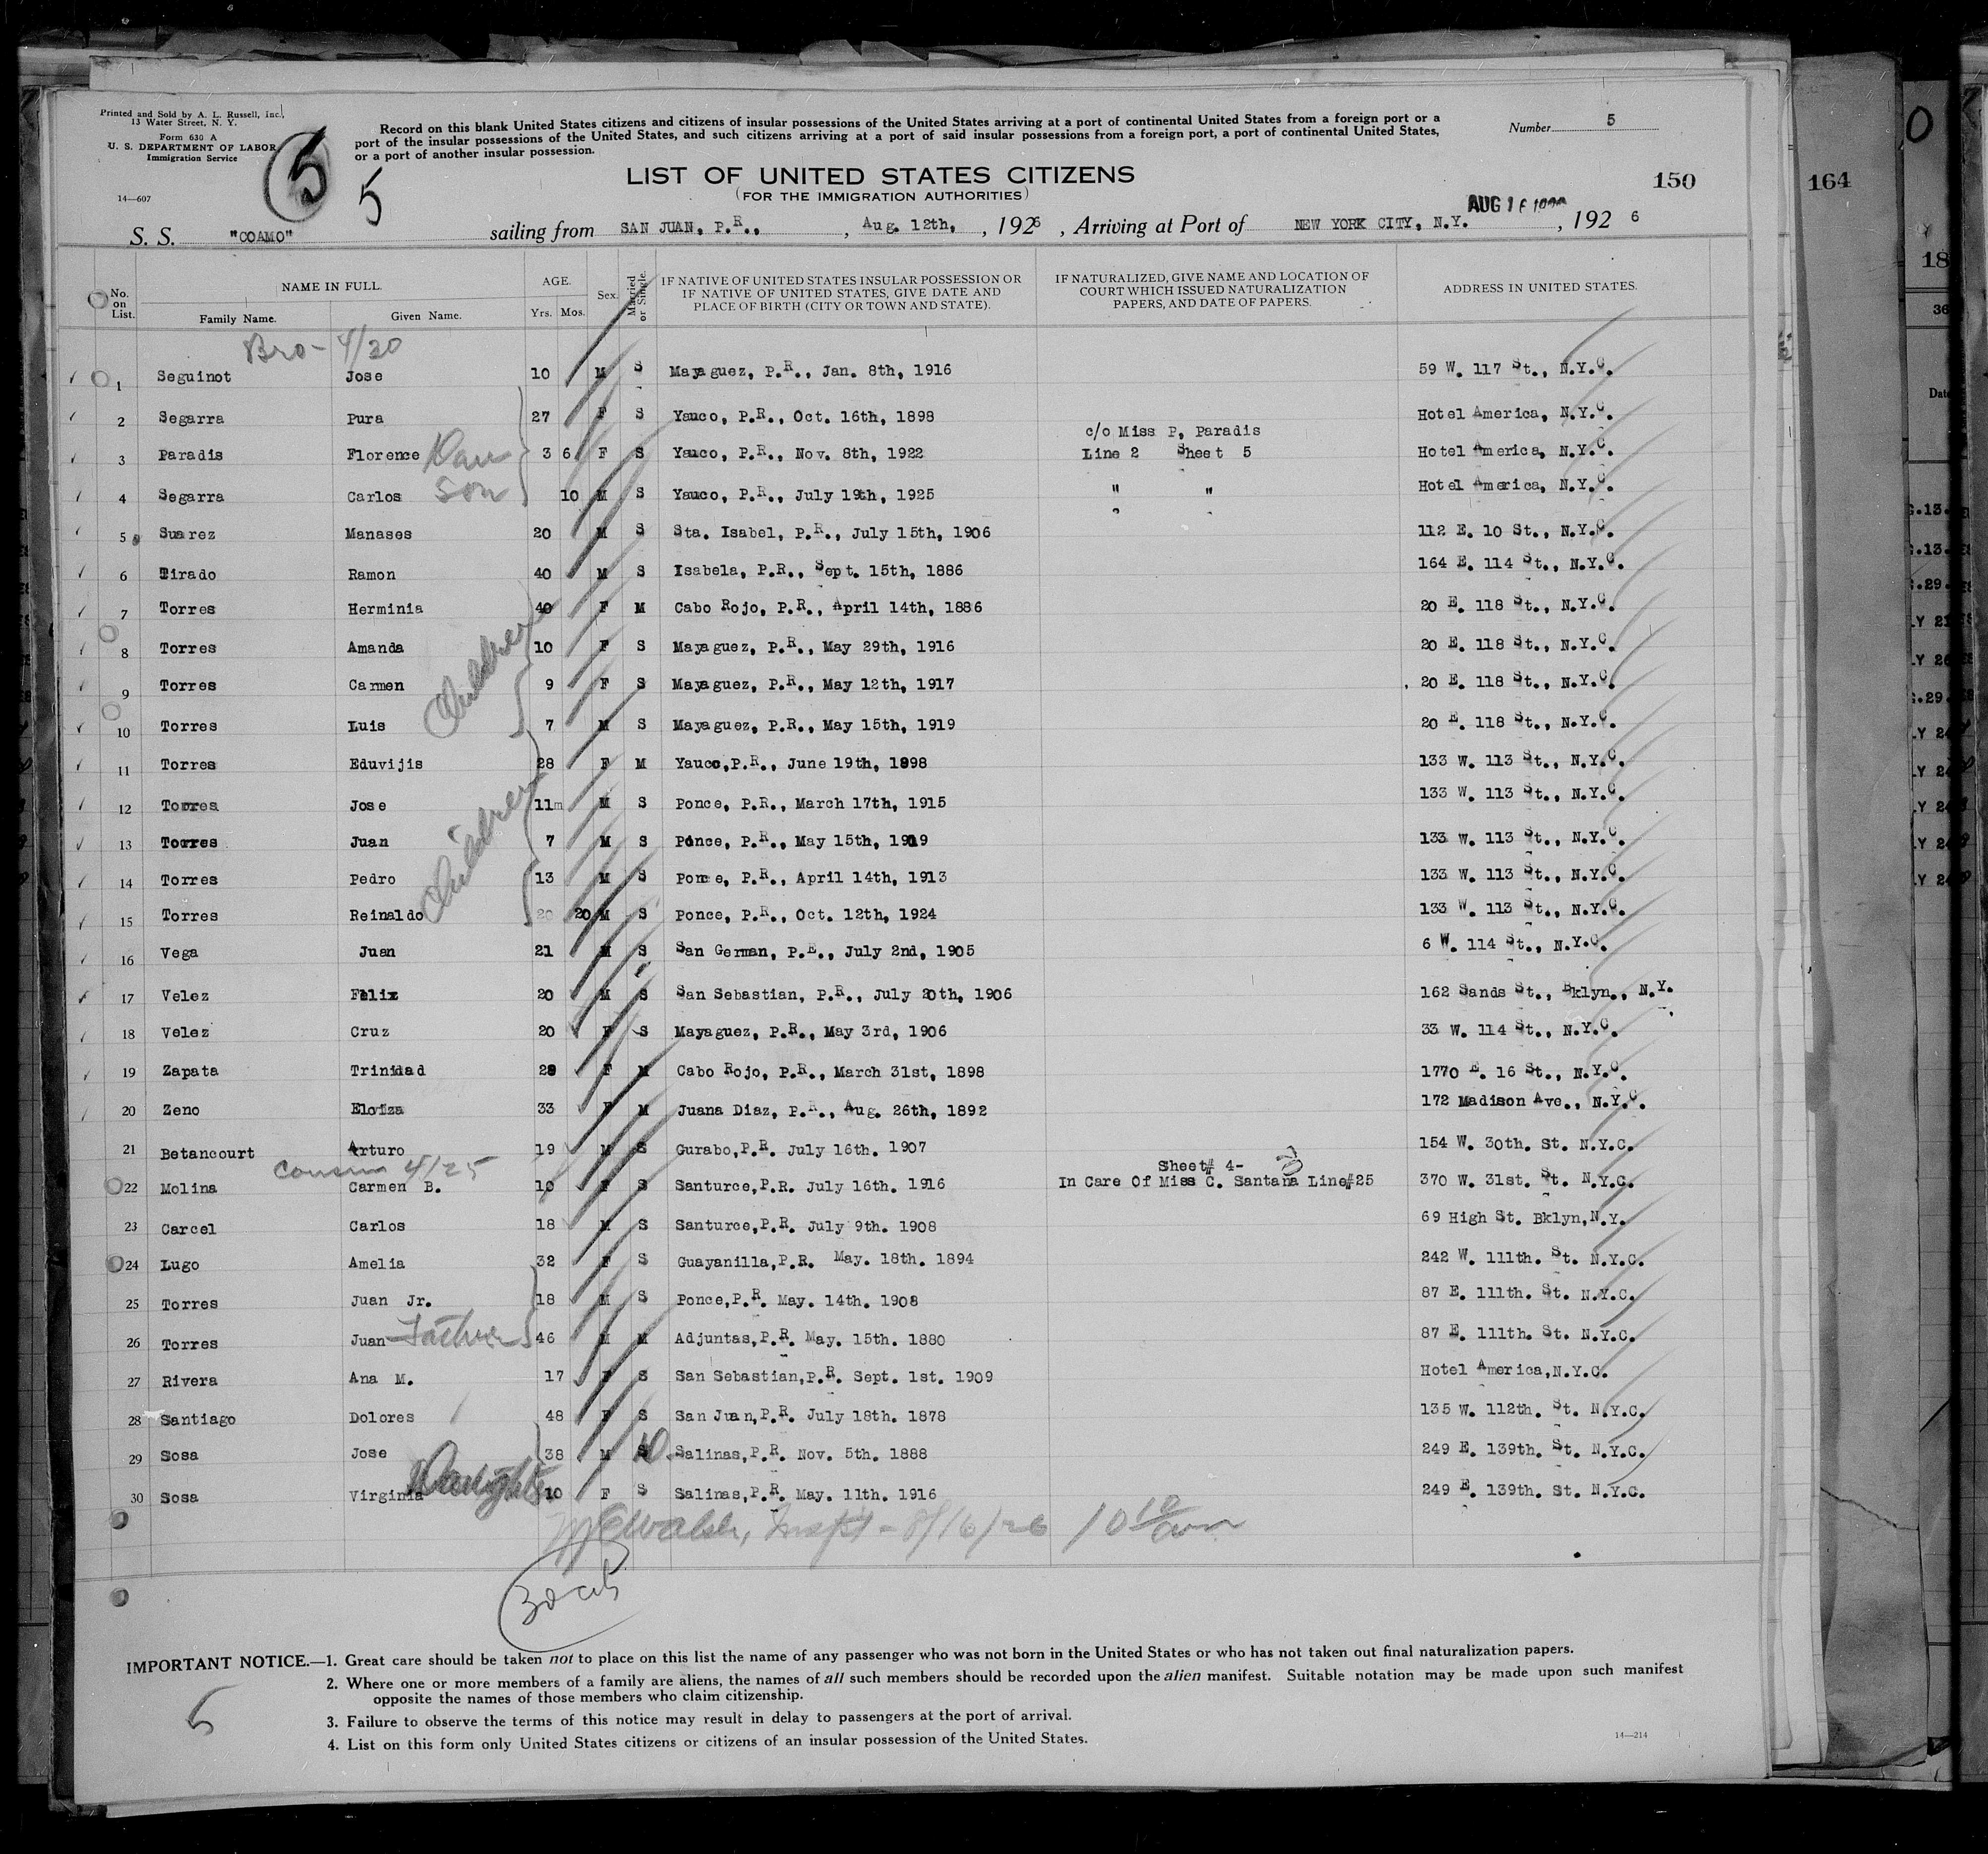 Printed and Sold by A. L. Russell, Inc.,
13 Water Street, N. Y.
Form 630 A
U. S. DEPARTMENT OF LABOR
Immigration Service
14—607
5
5
Record on this blank United States citizens and citizens of insular possessions of the United States arriving at a port of continental United States from a foreign port or a
port of the insular possessions of the United States, and such citizens arriving at a port of said insular possessions from a foreign port, a port of continental United States,
or a port of another insular possession.
Number 5
LIST OF UNITED STATES CITIZENS
(FOR THE IMMIGRATION AUTHORITIES)
150
164
S. S. "COAMO" sailing from SAN JUAN, P.R., , Aug. 12th, , 1926 , Arriving at Port of NEW YORK CITY, N.Y. AUG 16 , 1926
No. on List. NAME IN FULL. Family Name. Given Name. AGE. Yrs. Mos. Sex. Married or Single. IF NATIVE OF UNITED STATES INSULAR POSSESSION OR IF NATIVE OF UNITED STATES, GIVE DATE AND PLACE OF BIRTH (CITY OR TOWN AND STATE). IF NATURALIZED, GIVE NAME AND LOCATION OF COURT WHICH ISSUED NATURALIZATION PAPERS, AND DATE OF PAPERS. ADDRESS IN UNITED STATES.
Bro- 4/20
1 Seguinot Jose 10 M S Mayaguez, P.R., Jan. 8th, 1916 59 W. 117 St., N.Y.C.
2 Segarra Pura 27 F S Yauco, P.R., Oct. 16th, 1898 Hotel America, N.Y.C.
c/o Miss P, Paradis
3 Paradis Florence Dau 3 6 F S Yauco, P.R., Nov. 8th, 1922 Line 2 Sheet 5 Hotel America, N.Y.C.
4 Segarra Carlos son 10 M S Yauco, P.R., July 19th, 1925 " " Hotel America, N.Y.C.
5 Suarez Manases 20 M S Sta. Isabel, P.R., July 15th, 1906 112 E. 10 St., N.Y.C.
6 Tirado Ramon 40 M S Isabela, P.R., Sept. 15th, 1886 164 E. 114 St., N.Y.C.
7 Torres Herminia 40 F M Cabo Rojo, P.R., April 14th, 1886 20 E. 118 St., N.Y.C.
8 Torres Amanda 10 F S Mayaguez, P.R., May 29th, 1916 20 E. 118 St., N.Y.C.
Children
9 Torres Carmen 9 F S Mayaguez, P.R., May 12th, 1917 20 E. 118 St., N.Y.C.
10 Torres Luis 7 M S Mayaguez, P.R., May 15th, 1919 20 E. 118 St., N.Y.C.
11 Torres Eduvijis 28 F M Yauco,P.R., June 19th, 1898 133 W. 113 St., N.Y.C.
12 Torres Jose 11m M S Ponce, P.R., March 17th, 1915 133 W. 113 St., N.Y.C.
13 Torres Juan 7 M S Ponce, P.R., May 15th, 1919 133 W. 113 St., N.Y.C.
Children
14 Torres Pedro 13 M S Ponce, P.R., April 14th, 1913 133 W. 113 St., N.Y.C.
15 Torres Reinaldo 20 20 M S Ponce, P.R., Oct. 12th, 1924 133 W. 113 St., N.Y.C.
16 Vega Juan 21 M S San German, P.R., July 2nd, 1905 6 W. 114 St., N.Y.C.
17 Velez Felix 20 M S San Sebastian, P.R., July 20th, 1906 162 Sands St., Bklyn., N.Y.
18 Velez Cruz 20 F S Mayaguez, P.R., May 3rd, 1906 33 W. 114 St., N.Y.C.
19 Zapata Trinidad 28 F M Cabo Rojo, P.R., March 31st, 1898 1770 E. 16 St., N.Y.C.
20 Zeno Eloiza 33 F M Juana Diaz, P.R., Aug. 26th, 1892 172 Madison Ave., N.Y.C.
21 Betancourt Arturo 19 M S Gurabo,P.R. July 16th. 1907 154 W. 30th. St. N.Y.C.
cousin 4/25
Sheet# 4-
22 Molina Carmen B. 10 F S Santurce,P.R. July 16th. 1916 In Care Of Miss C. Santana Line#25 370 W. 31st. St. N.Y.C.
23 Carcel Carlos 18 M S Santurce,P.R. July 9th. 1908 69 High St. Bklyn,N.Y.
24 Lugo Amelia 32 F S Guayanilla,P.R. May. 18th. 1894 242 W. 111th. St. N.Y.C.
25 Torres Juan Jr. 18 M S Ponce,P.R. May. 14th. 1908 87 E. 111th. St. N.Y.C.
26 Torres Juan Father 46 M M Adjuntas,P.R. May. 15th. 1880 87 E. 111th. St. N.Y.C.
27 Rivera Ana M. 17 F S San Sebastian,P.R. Sept. 1st. 1909 Hotel America,N.Y.C.
28 Santiago Dolores 48 F S San Juan,P.R. July 18th. 1878 135 W. 112th. St. N.Y.C.
29 Sosa Jose 38 M Salinas,P.R. Nov. 5th. 1888 249 E. 139th. St. N.Y.C.
30 Sosa Virginia Daughter 10 F S Salinas,P.R. May. 11th. 1916 249 E. 139th. St. N.Y.C.
Walsh, Inspt - 8/16/26 10 10 am
30 cits
IMPORTANT NOTICE.—1. Great care should be taken not to place on this list the name of any passenger who was not born in the United States or who has not taken out final naturalization papers.
2. Where one or more members of a family are aliens, the names of all such members should be recorded upon the alien manifest. Suitable notation may be made upon such manifest
opposite the names of those members who claim citizenship.
3. Failure to observe the terms of this notice may result in delay to passengers at the port of arrival.
4. List on this form only United States citizens or citizens of an insular possession of the United States.
5
14—214